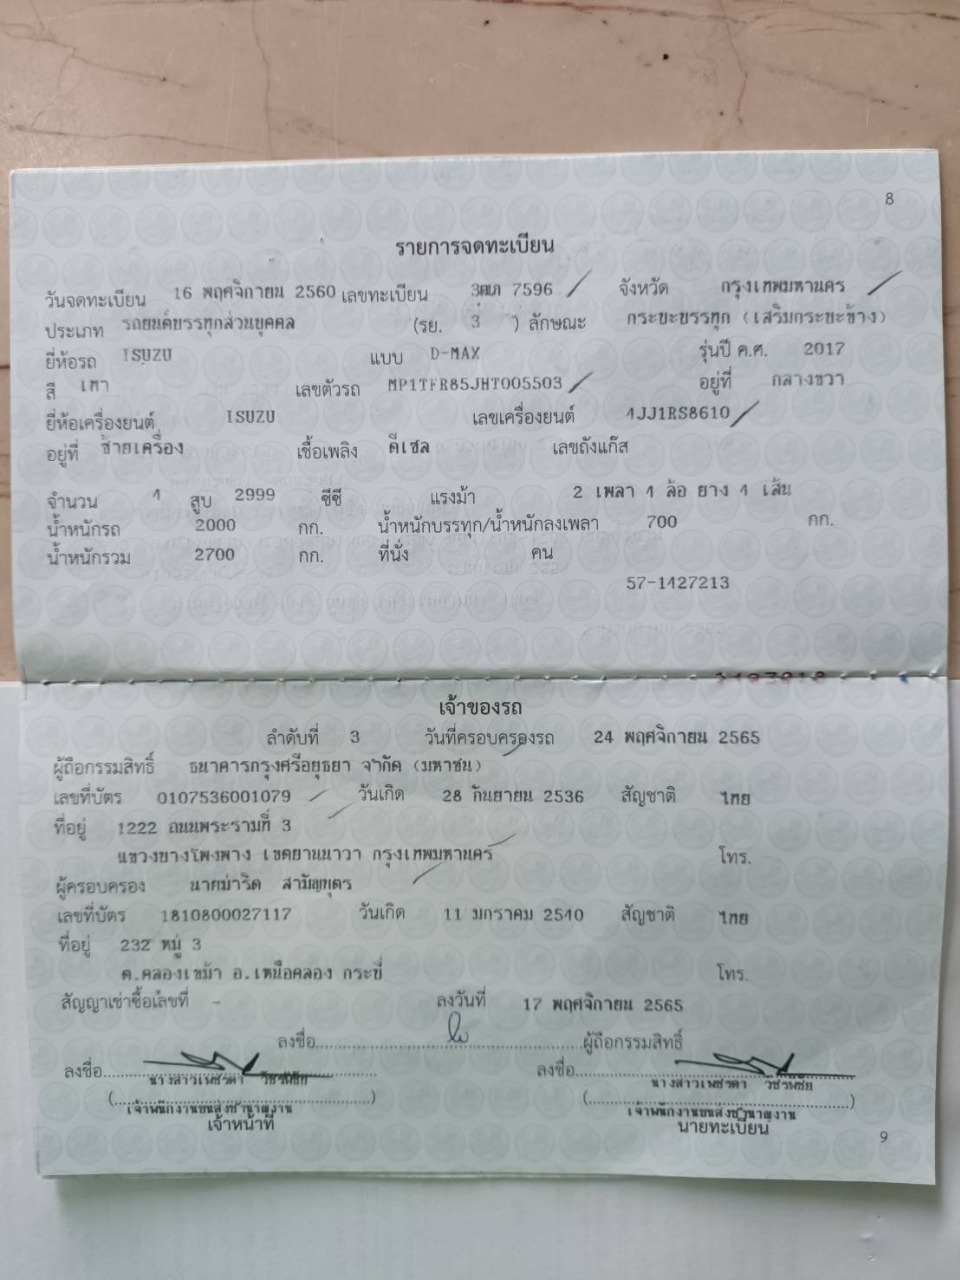 8
รายการจดทะเบียน
วันจดทะเบียน 16 พฤศจิกายน 2560 เลขทะเบียน 3ฒภ 7596 จังหวัด กรุงเทพมหานคร
ประเภท รถยนต์บรรทุกส่วนบุคคล (รย. 3 ) ลักษณะ กระบะบรรทุก (เสริมกระบะข้าง)
ยี่ห้อรถ ISUZU แบบ D-MAX รุ่นปี ค.ศ. 2017
สี เทา เลขตัวรถ MP1TFR85JHT005503 อยู่ที่ กลางขวา
ยี่ห้อเครื่องยนต์ ISUZU เลขเครื่องยนต์ 4JJ1RS8610
อยู่ที่ ซ้ายเครื่อง เชื้อเพลิง ดีเซล เลขถังแก๊ส
จำนวน 4 สูบ 2999 ซีซี แรงม้า 2 เพลา 4 ล้อ ยาง 4 เส้น
น้ำหนักรถ 2000 กก. น้ำหนักบรรทุก/น้ำหนักลงเพลา 700 กก.
น้ำหนักรวม 2700 กก. ที่นั่ง คน
57-1427213
เจ้าของรถ
ลำดับที่ 3 วันที่ครอบครองรถ 24 พฤศจิกายน 2565
ผู้ถือกรรมสิทธิ์ ธนาคารกรุงศรีอยุธยา จำกัด (มหาชน)
เลขที่บัตร 0107536001079 วันเกิด 28 กันยายน 2536 สัญชาติ ไทย
ที่อยู่ 1222 ถนนพระรามที่ 3
แขวงบางโพงพาง เขตยานนาวา กรุงเทพมหานคร โทร.
ผู้ครอบครอง นายม่าริต สามัญบุตร
เลขที่บัตร 1810800027117 วันเกิด 11 มกราคม 2540 สัญชาติ ไทย
ที่อยู่ 232 หมู่ 3
ต.คลองเขม้า อ.เหนือคลอง กระบี่ โทร.
สัญญาเช่าซื้อเลขที่ - ลงวันที่ 17 พฤศจิกายน 2565
ลงชื่อ ผู้ถือกรรมสิทธิ์
ลงชื่อ ลงชื่อ
นางสาวเพชรดา วัชรพิชัย นางสาวเพชรดา วัชรพิชัย
(เจ้าพนักงานขนส่งชำนาญงาน) (เจ้าพนักงานขนส่งชำนาญงาน)
เจ้าหน้าที่ นายทะเบียน
9